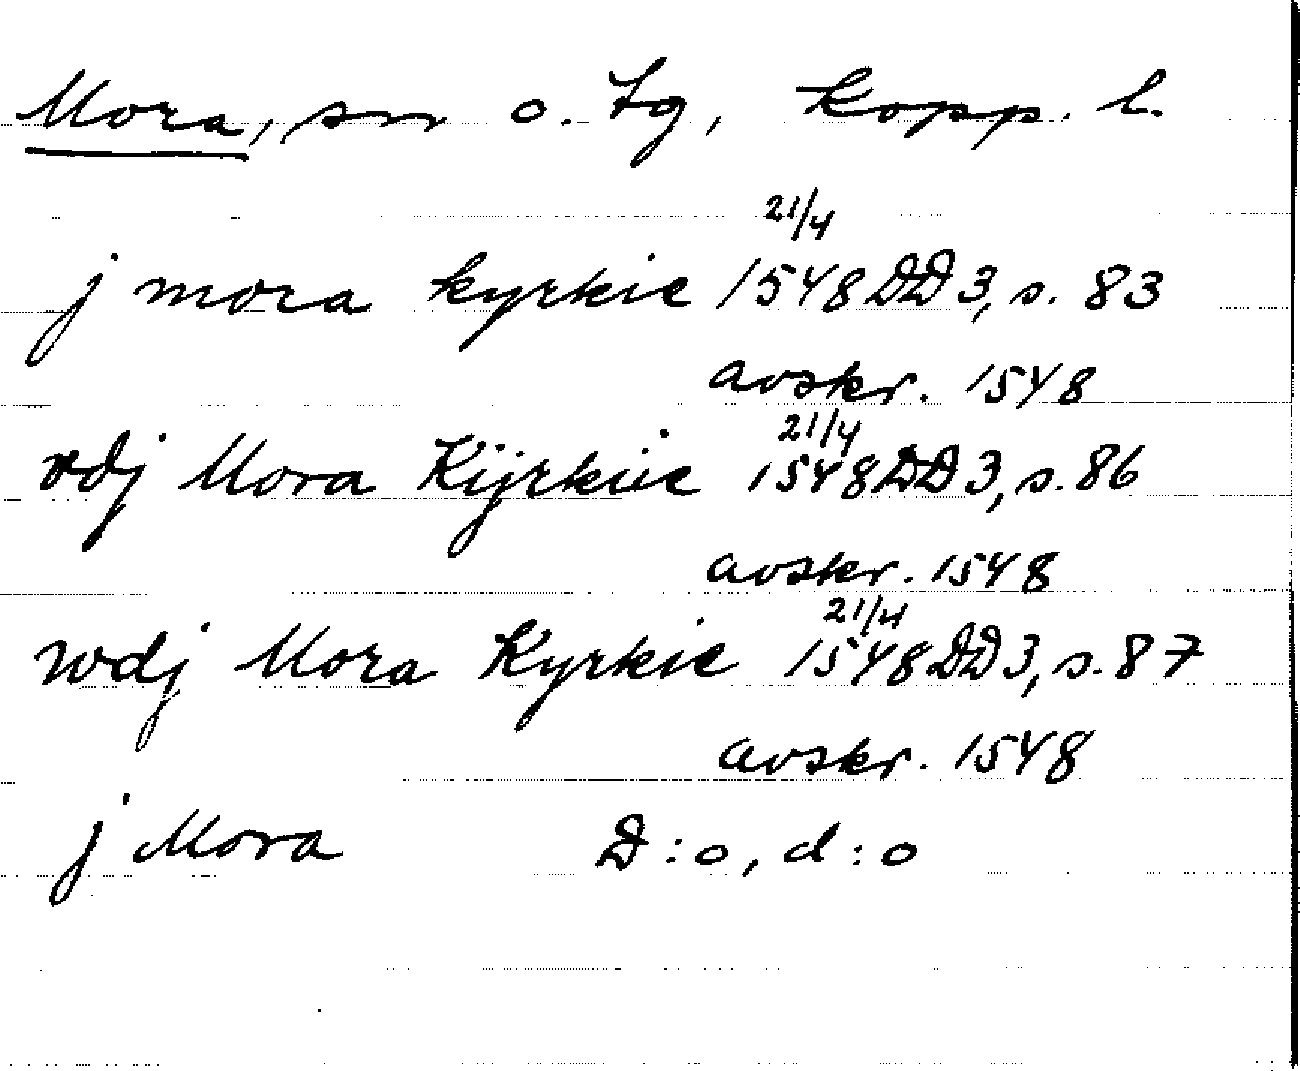 Mora, sn o. tg, Kopp. l.
21/4
j mora kyrkie 1548 DD 3, s. 83
avskr. 1548
21/4
vdj Mora Kÿrkiie 1548 DD 3, s. 86
avskr. 1548
21/4
wdj Mora Kyrkie 1548 DD 3, s. 87
avskr. 1548
j Mora D:o, d:o